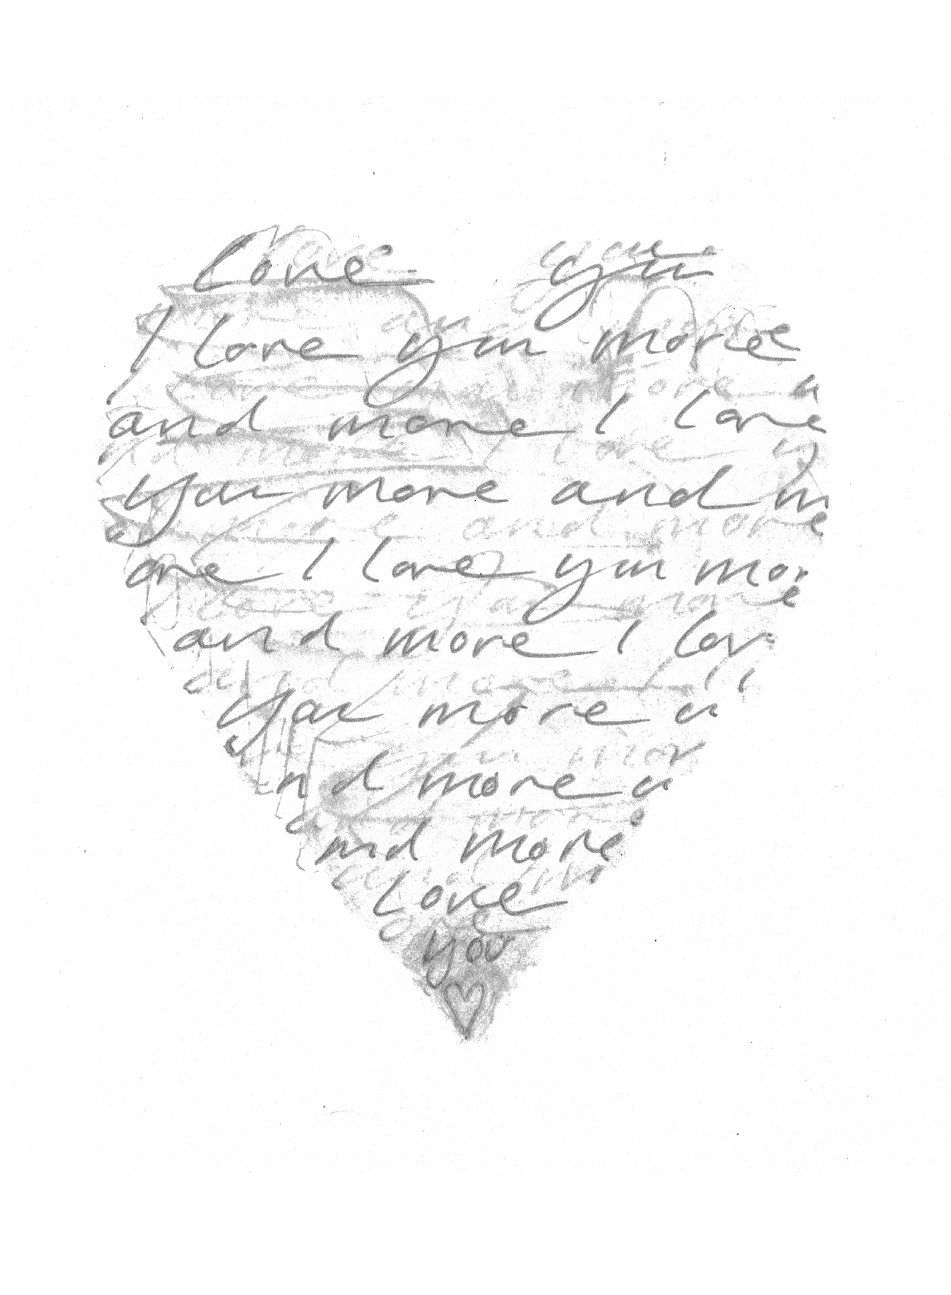 Love you
I love you more
and more I love
you more and m
ore I love you more
and more I lov
you more a
nd more a
nd more
Love
you